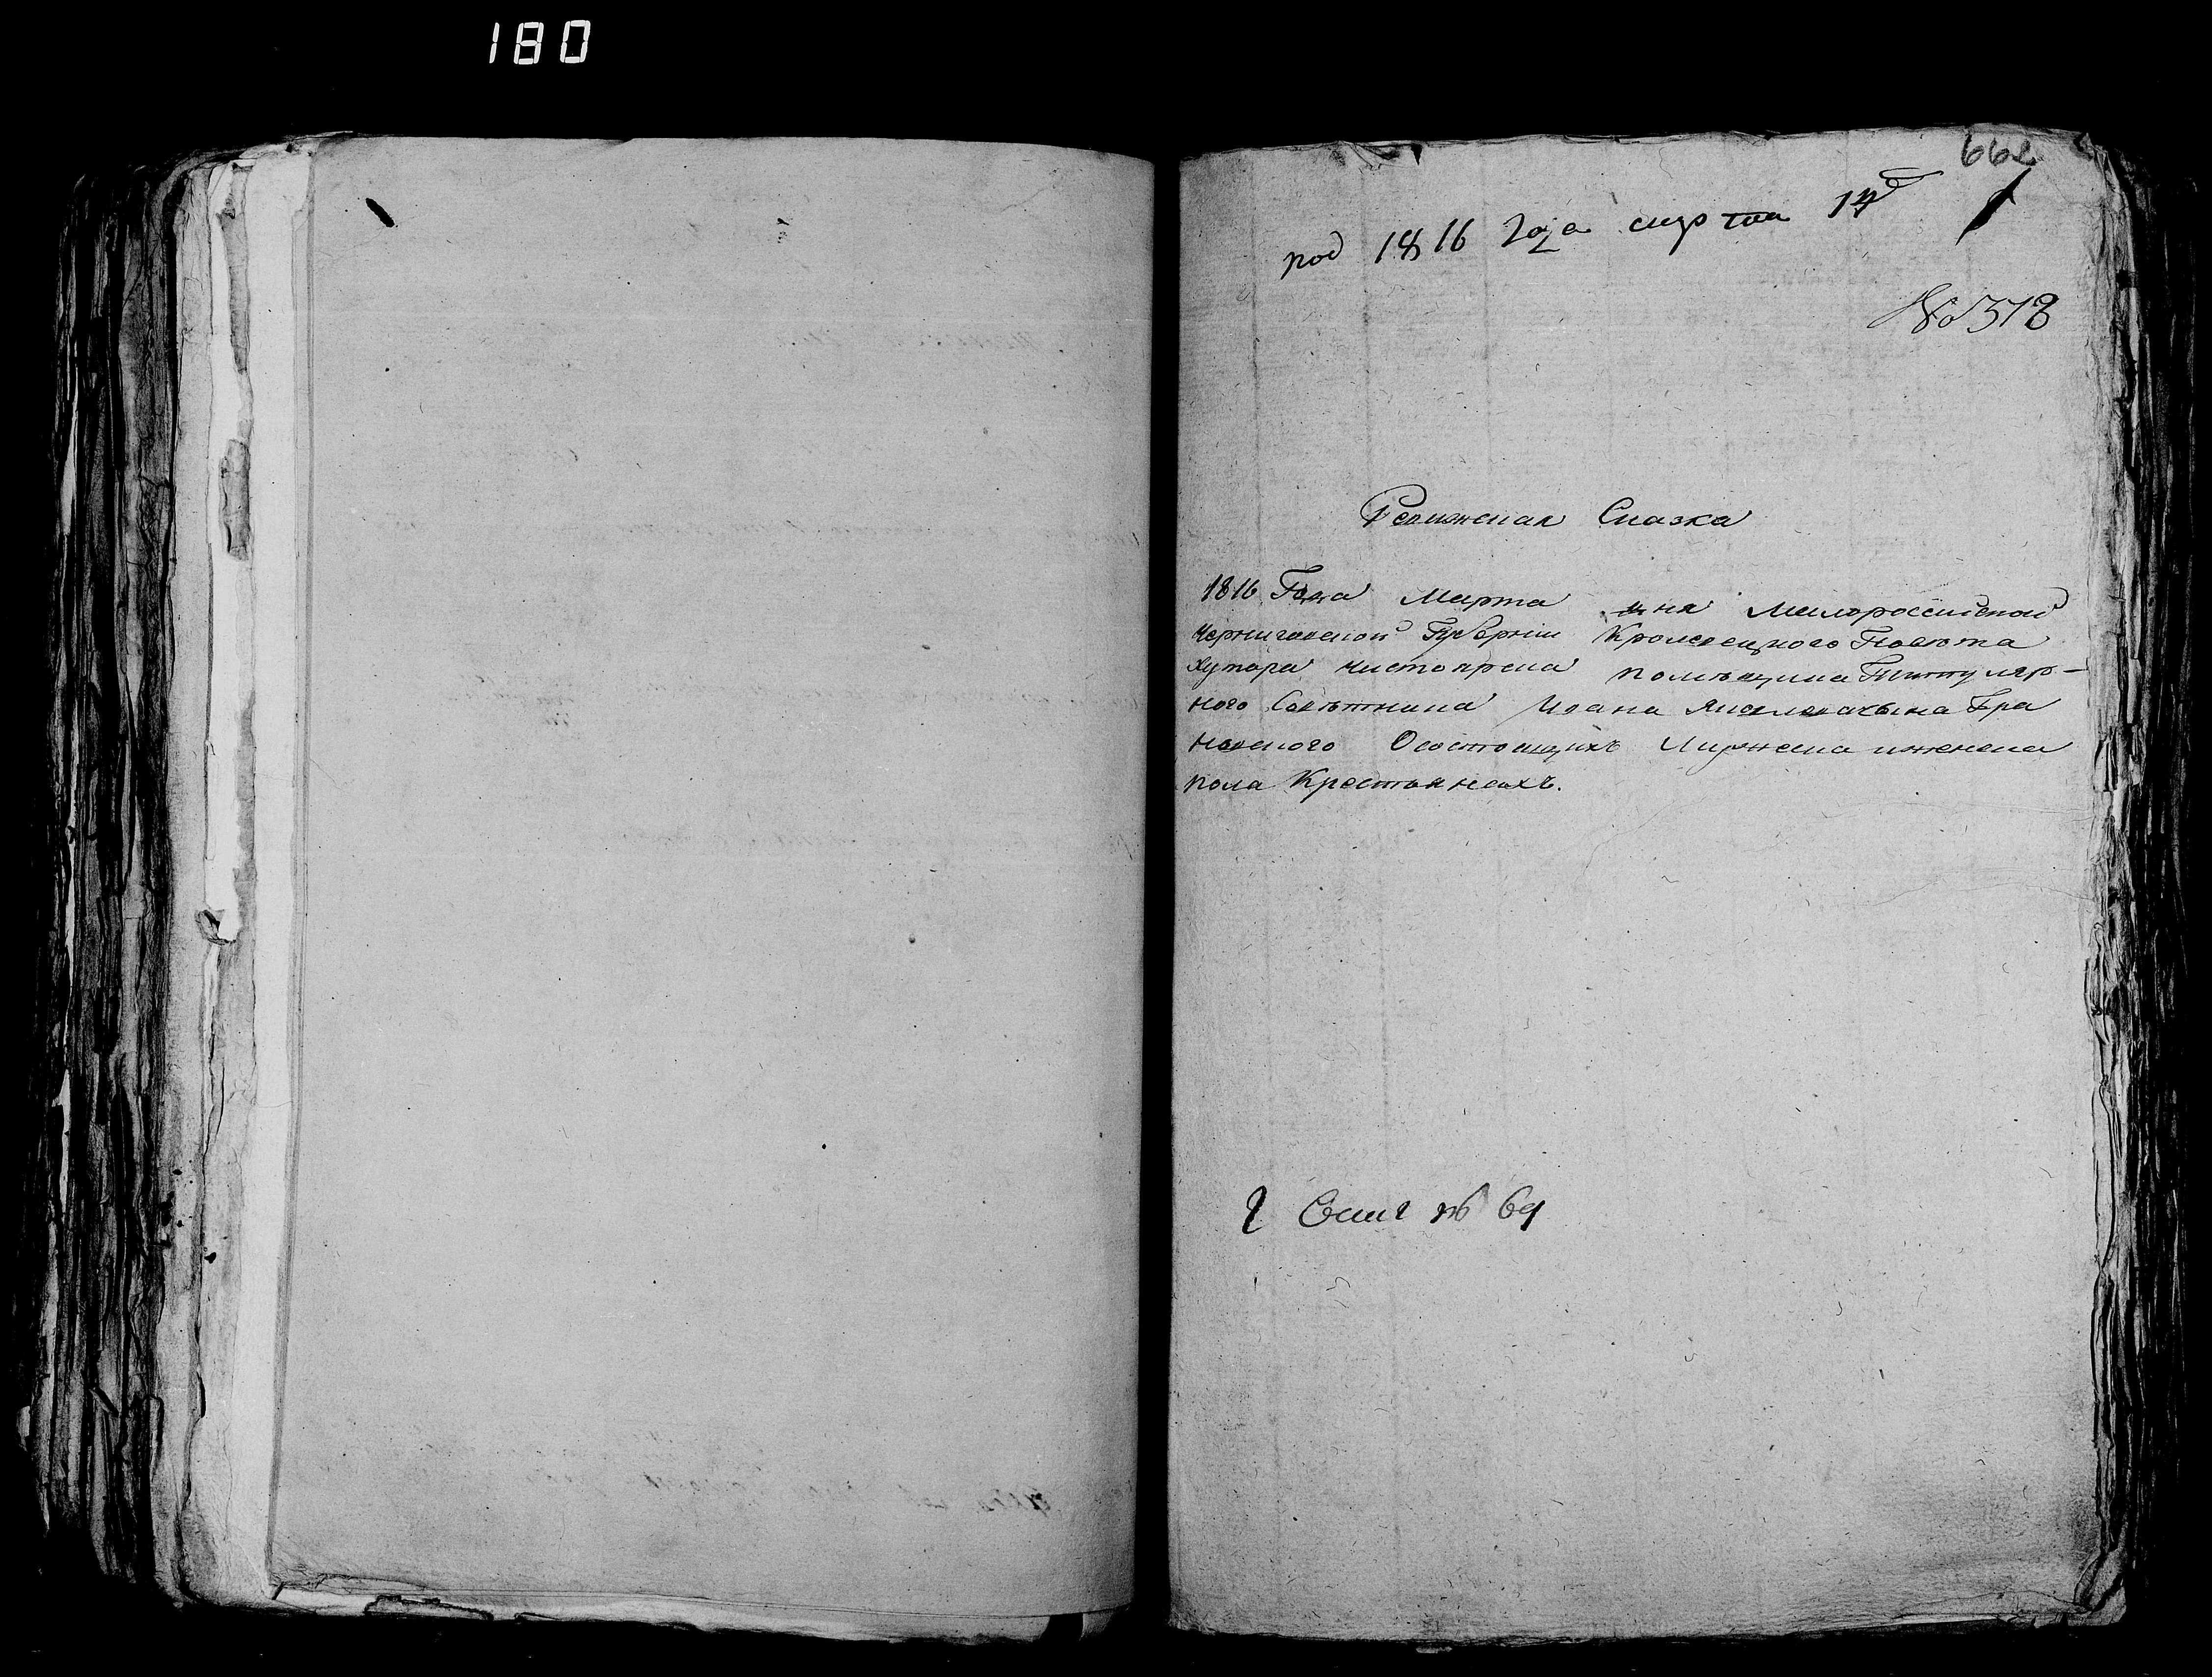 180
662
под 1816 года марта 14
№ 378
Ревижская Сказка
1816 Года Марта дня Малороссийской
Черниговской Губернии Кролевецкого Повета
Хутора Чистопрска помѣщика Титуляр-
ного Совѣтника Ивана Яковлевича сына Гра
новского Осостоящихъ Мужеска иженска
пола Крестьянехъ.
№ 69